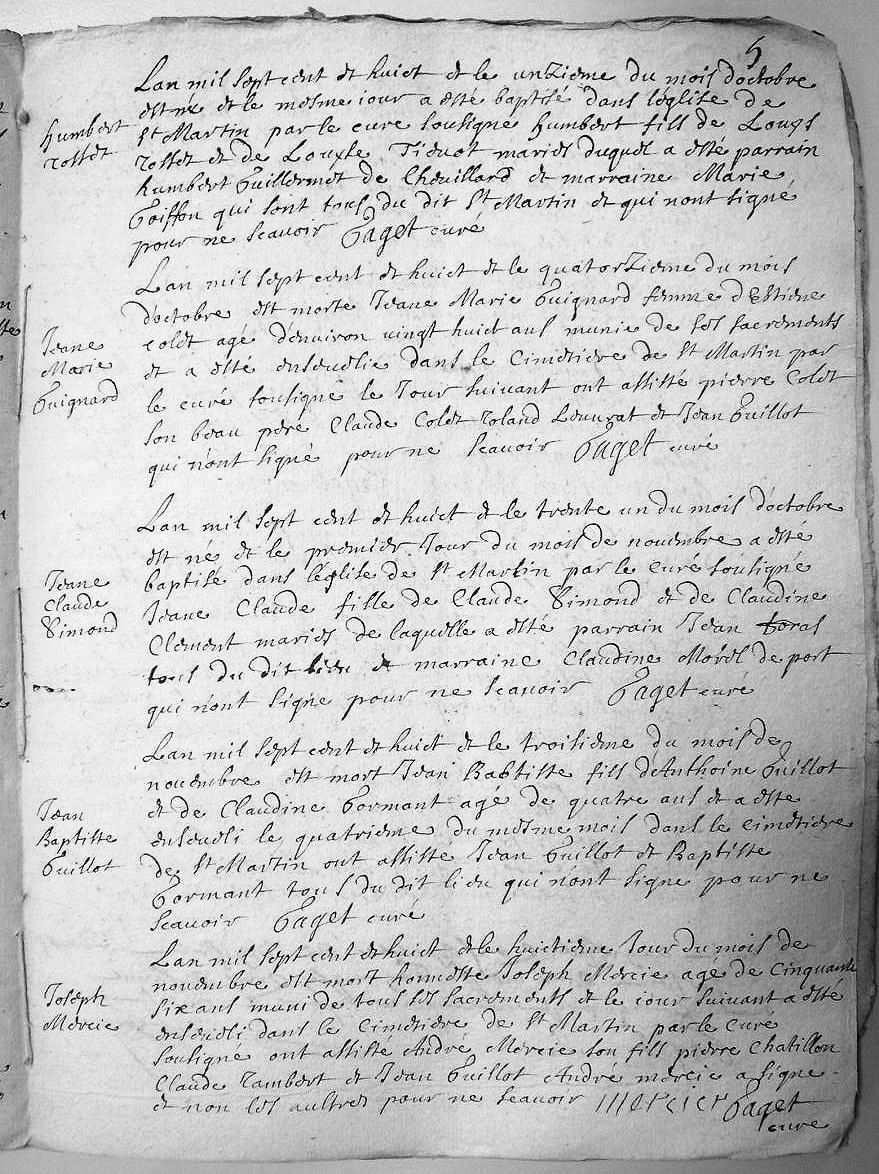 5
Lan mil sept cent et huict et le unzieme du mois doctobre
est né et le mesme iour a esté baptisé dans léglise de
Humbert
rosset
St Martin par le curé sousigné humbert fils de Louys
rosset et de Louyse Tienot mariés duquel a esté parrain
humbert Guillermet de Cheuillard et marraine Marie
Goiffon qui sont tous du dit St Martin et qui nont signé
pour ne scauoir Gaget curé
Lan mil sept cent et huict et le quatorzieme du mois
doctobre est morte Jeane Marie Guignard femme dEstiene
Jeane
Marie
Guignard
colet agé denuiron uingt huict ans munie de ses sacrements
et a esté enseuelie dans le Cimetiere de St Martin par
le curé sousigné le Jour suiuant ont assisté pierre Colet
son beau pere Claude Colet roland et Jean Guillot
qui nont signé pour ne scauoir Gaget curé
Lan mil sept cent et huict et le trente un du mois doctobre
est né et le premier Jour du mois de nouembre a esté
Jeane
Claude
Simond
baptisé dans léglise de St Martin par le curé sousigné
Jeane Claude fille de Claude Simond et de Claudine
Clement mariés de laquelle a esté parrain Jean
tous du dit lieu et marraine Claudine Morel de port
qui nont signe pour ne scauoir Gaget curé
Lan mil sept cent et huict et le troisieme du mois de
nouembre est mort Jean Baptiste fils dAnthoine Guillot
Jean
Baptiste
Guillot
et de Claudine Gormant agé de quatre ans et a esté
enseueli le quatrieme du mesme mois dans le cimetiere
de St Martin ont assisté Jean Guillot et Baptiste
Gormant tous du dit lieu qui nont signe pour ne
scauoir Gaget curé
Lan mil sept cent et huict et le huictieme Jour du mois de
nouembre est mort honneste Joseph Mercie agé de cinquante
Joseph
Mercie
six ans muni de tous ses sacrements et le iour suiuant a esté
enseueli dans le Cimetiere de St Martin par le curé
sousigné ont assisté Andre Mercie son fils pierre Chatillon
Claude Lambert et Jean Guillot André mercie a signe
et non les aultres pour ne scauoir Mercier Gaget
curé